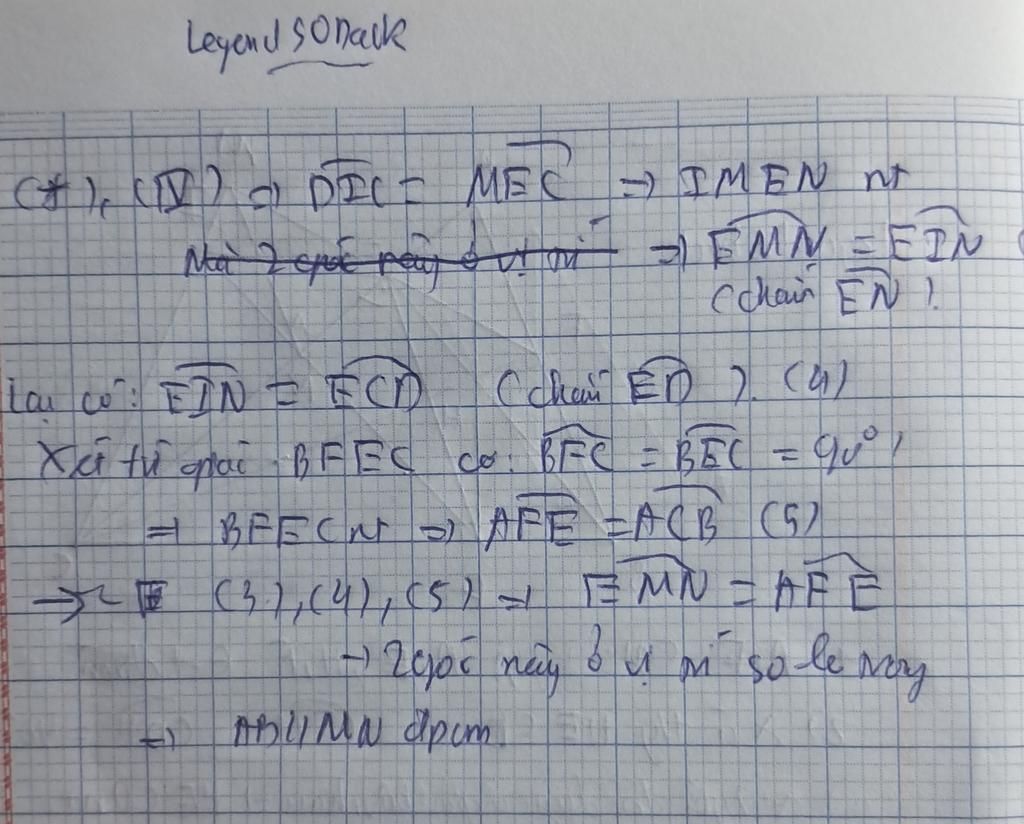 Legend SONack
(*), (IV) ⇒ DIC = MEC ⇒ IMEN nt
Mà 2 góc này ở vị trí ⇒ EMN = EIN
(chắn EN).
Lại có: EIN = ECD (chắn ED). (4)
Xét tứ giác BFEC có: BFC = BEC = 90°
⇒ BFEC nt ⇒ AFE = ACB (5)
→ (3), (4), (5) ⇒ EMN = AFE
→ 2 góc này ở vị trí so le trong
⇒ AB // MN đpcm